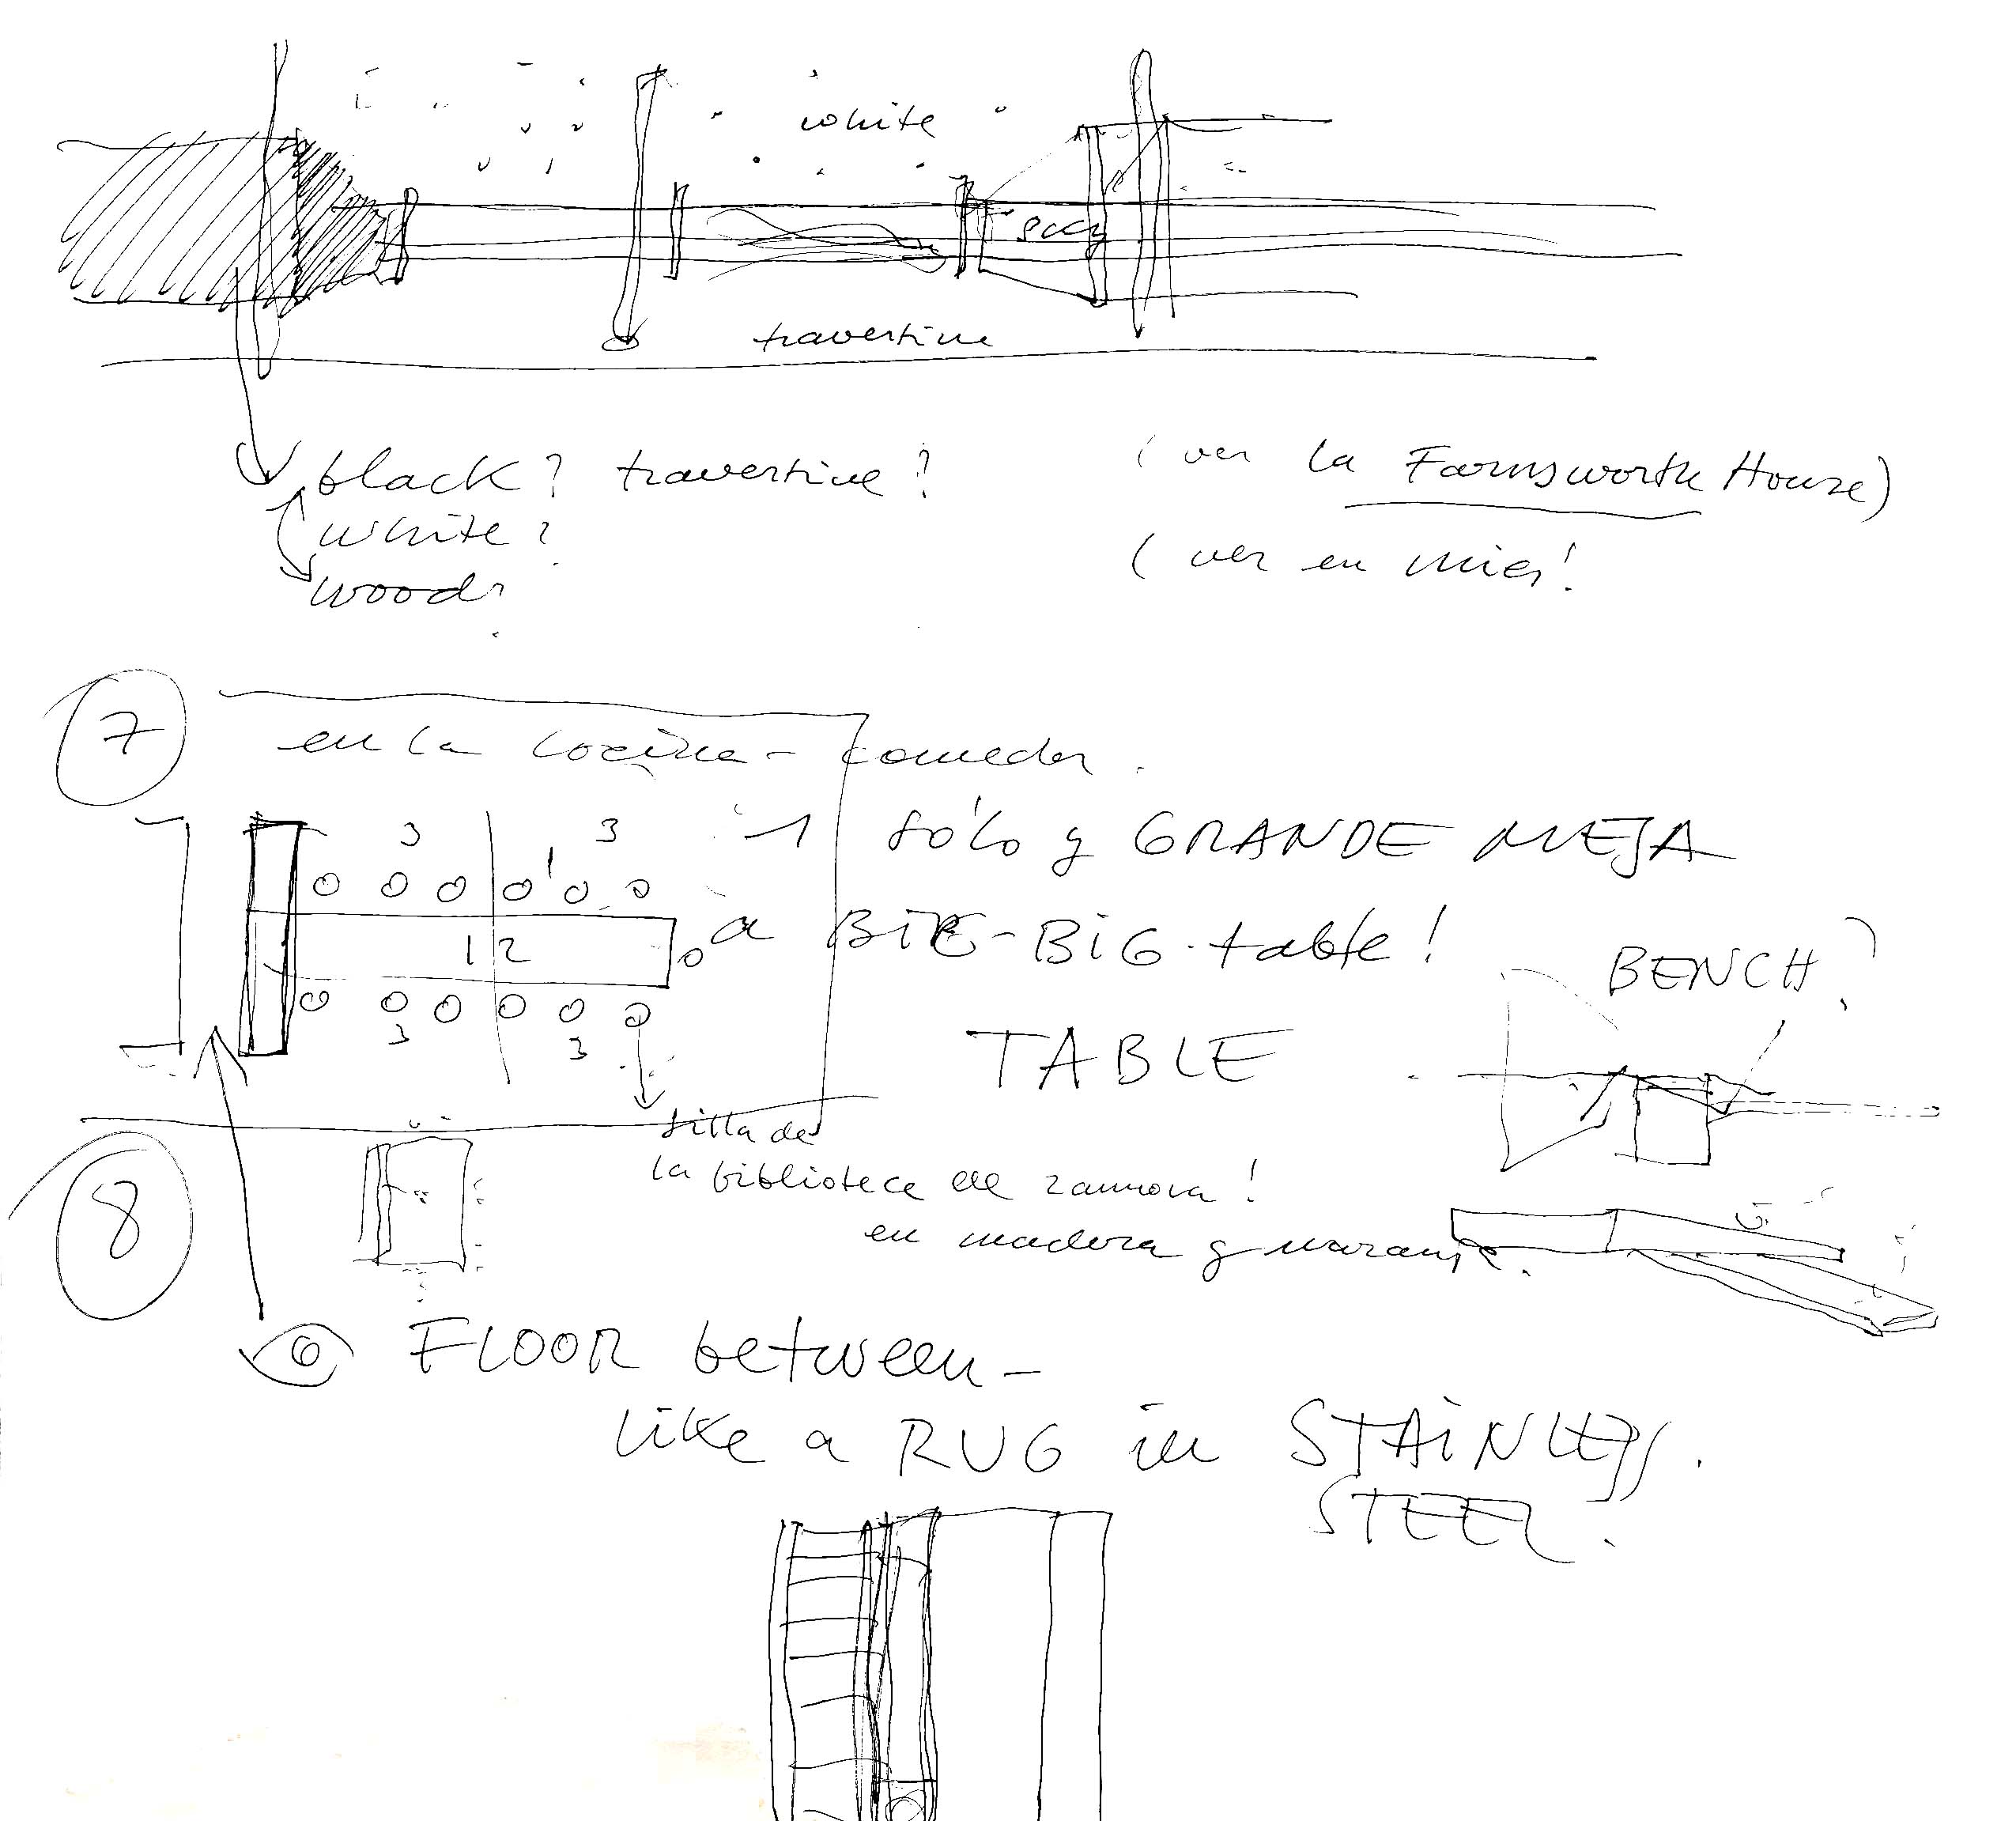 white
travertine
black? travertine?
white?
wood?
(ver la Farnsworth House)
(ver en mies!
7
en la cocina-comedor.
3 3
1 sólo y GRANDE MESA
12
a BIG-BIG-table!
BENCH?
3 3
TABLE
silla de
la biblioteca de zamora!
en madera y naranja.
8
FLOOR between-
like a RUG in STAINLESS.
STEEL.